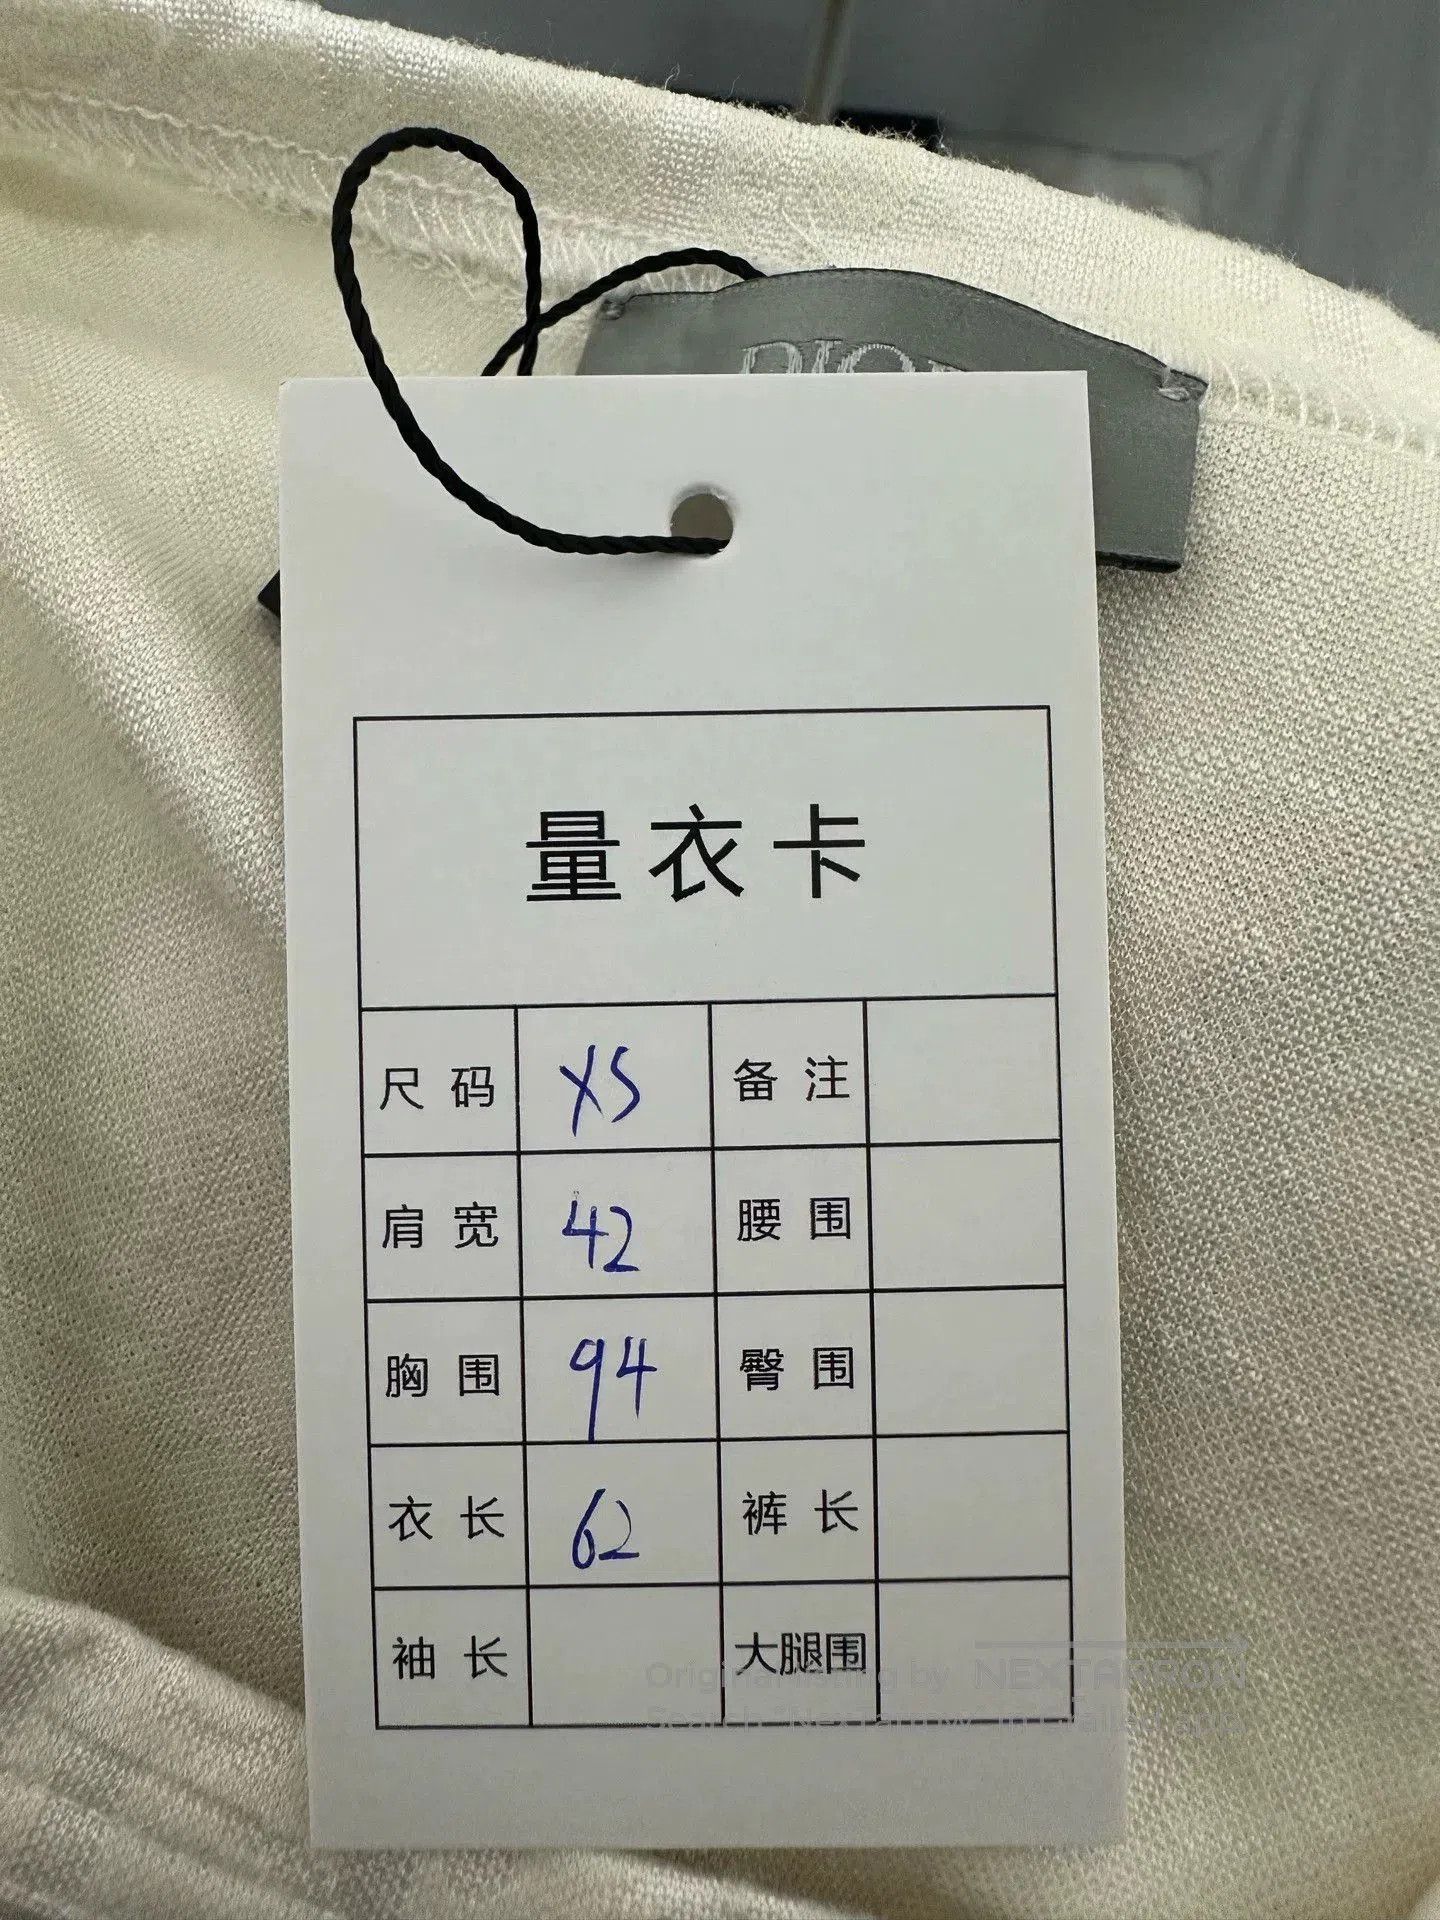 DIOR
量衣卡
尺码 XS 备注
肩宽 42 腰围
胸围 94 臀围
衣长 62 裤长
袖长 大腿围
Original listing by NEXTARROW